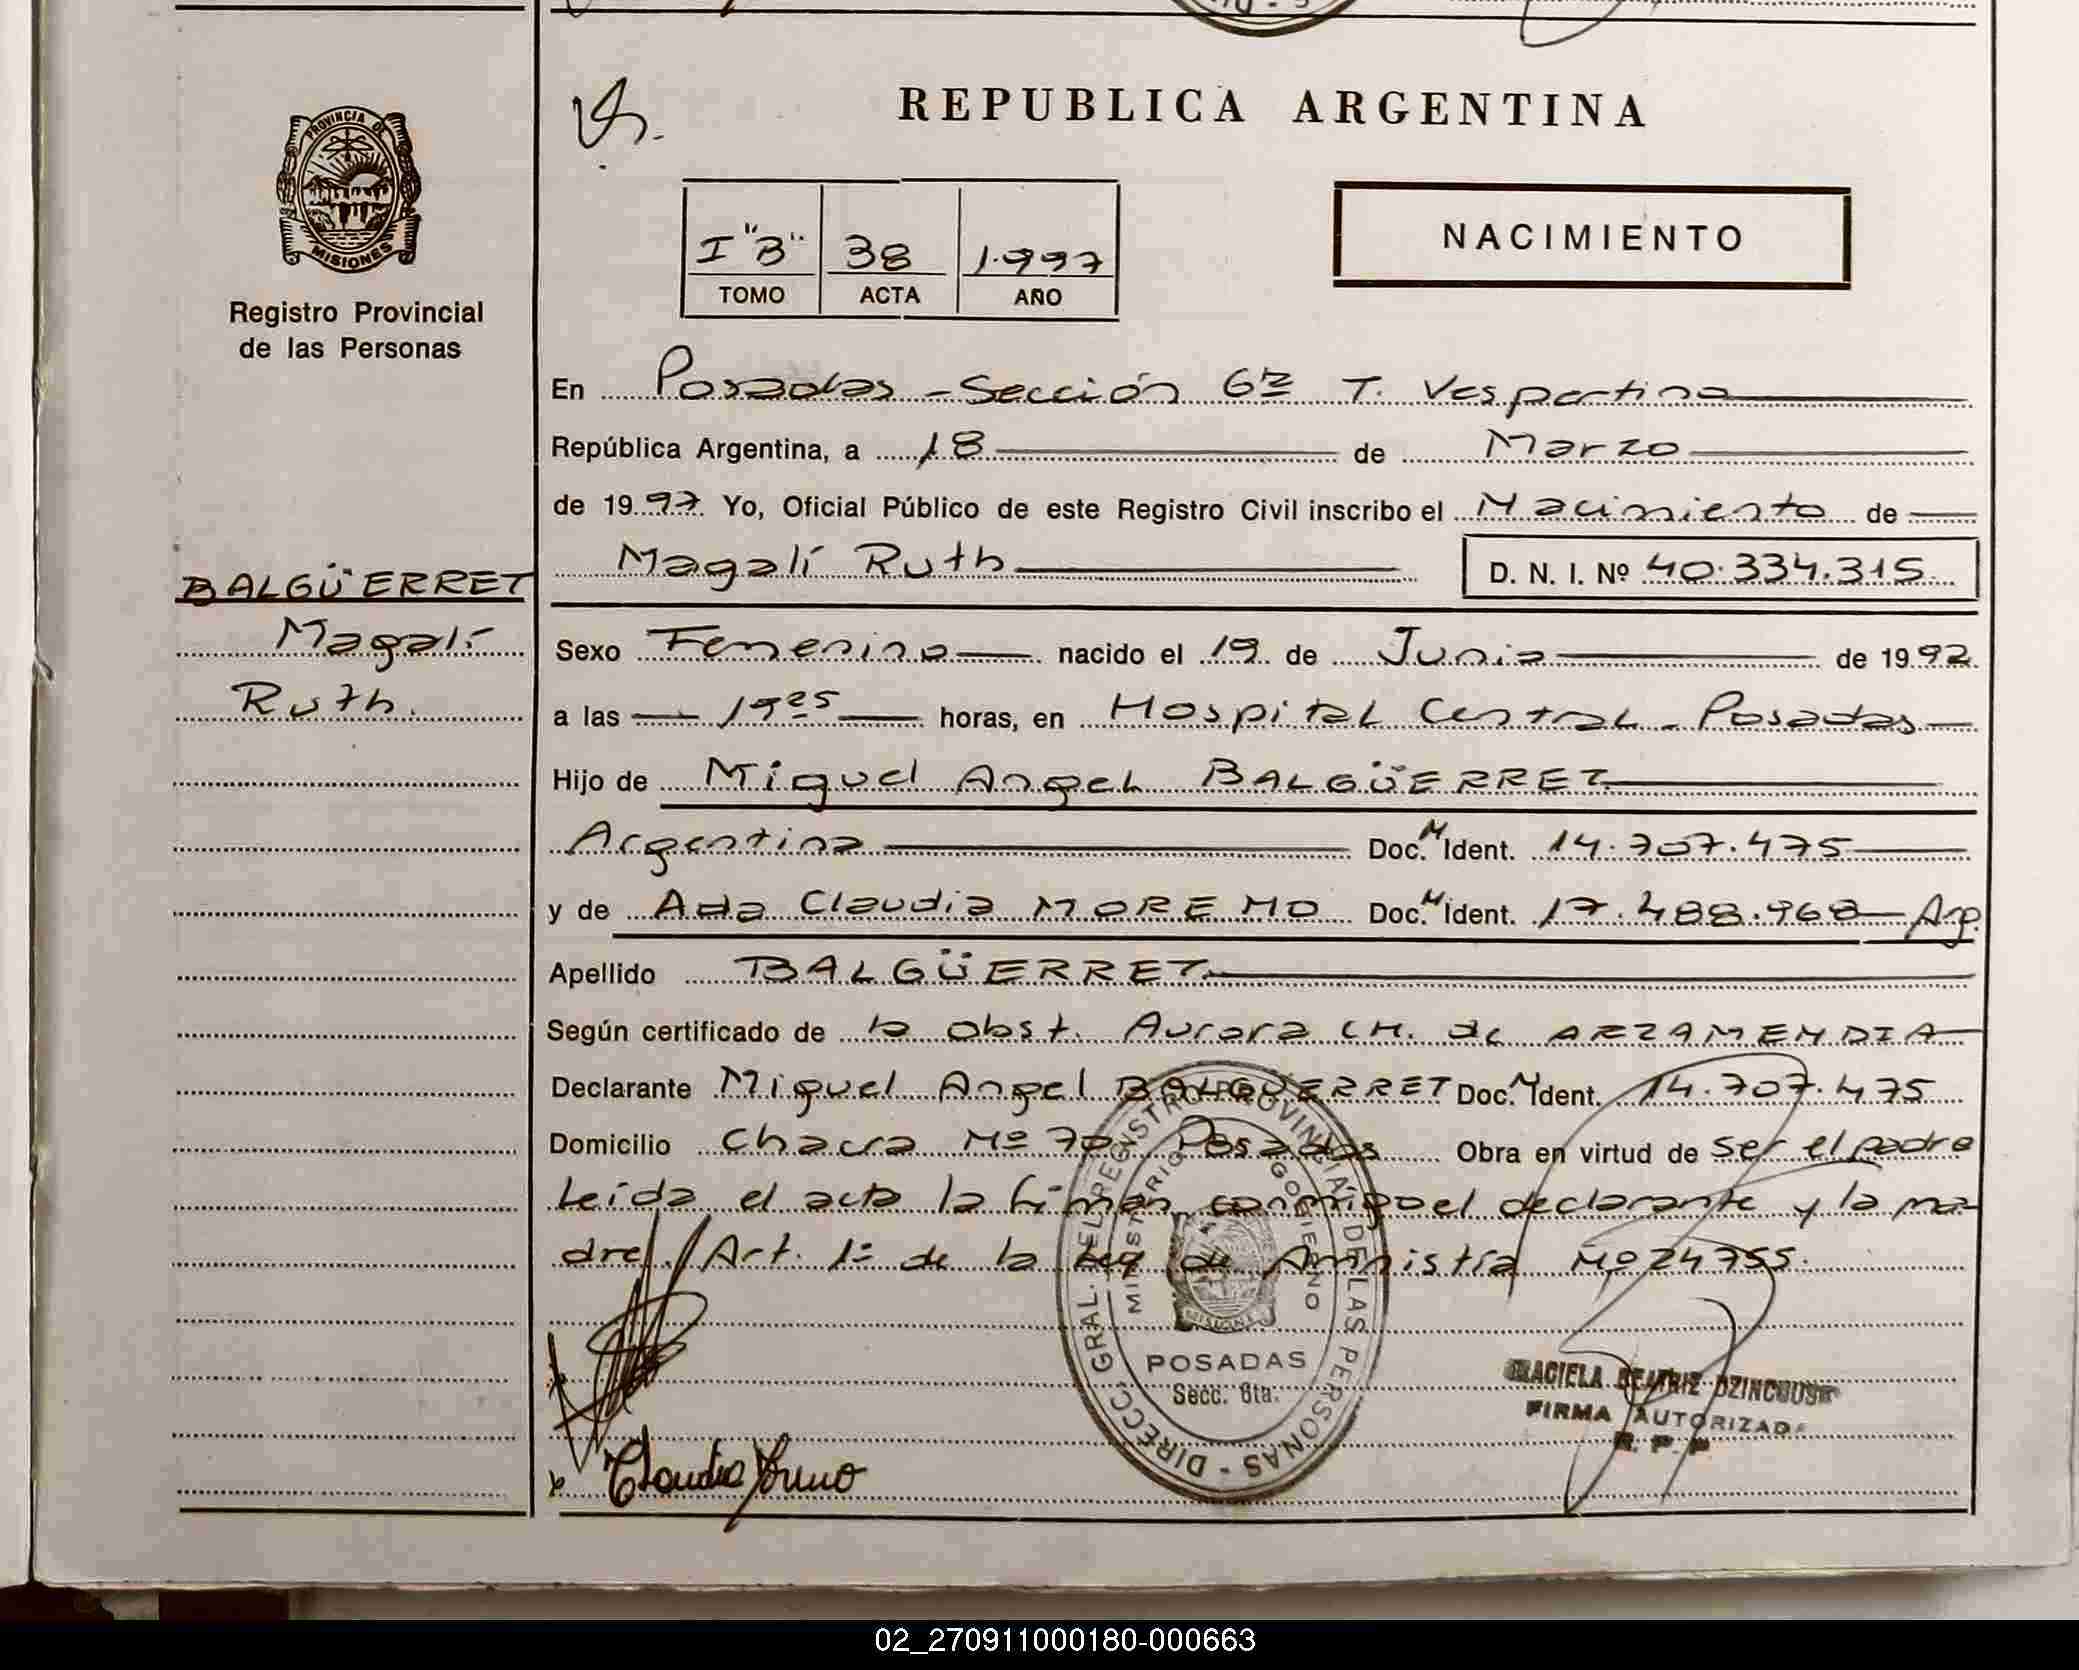 PROVINCIA DE
MISIONES
Registro Provincial
de las Personas
BALGÜERRET
Magalí
Ruth.
REPUBLICA ARGENTINA
I "B" 38 1.997
TOMO ACTA AÑO
NACIMIENTO
En Posadas - Sección 6ta T. Vespertina
República Argentina, a 18 de Marzo
de 1997. Yo, Oficial Público de este Registro Civil inscribo el Nacimiento de
Magalí Ruth D. N. I. Nº 40.334.315
Sexo Femenino nacido el 19 de Junio de 1992
a las 19 25 horas, en Hospital Central - Posadas
Hijo de Miguel Angel BALGÜERRET
Argentina Doc. N Ident. 14.707.475
y de Ada Claudia MORENO Doc. N Ident. 17.488.968 Arg.
Apellido BALGÜERRET
Según certificado de la obst. Aurora CH. de ARZAMENDIA
Declarante Miguel Angel BALGÜERRET Doc. N Ident. 14.707.475
Domicilio Chacra Nº 70 Posadas Obra en virtud de ser el padre
Leída el acta la firman conmigo el declarante y la ma-
dre // Art. 1º de la Ley de Amnistía Nº 24755.
DIRECC. GRAL. DEL REGISTRO PROVINCIAL DE LAS PERSONAS
MINISTERIO GOBIERNO
MISIONES
POSADAS
Secc. 6ta.
GRACIELA BEATRIZ
FIRMA AUTORIZADA
R. P. P
Claudia
02_270911000180-000663